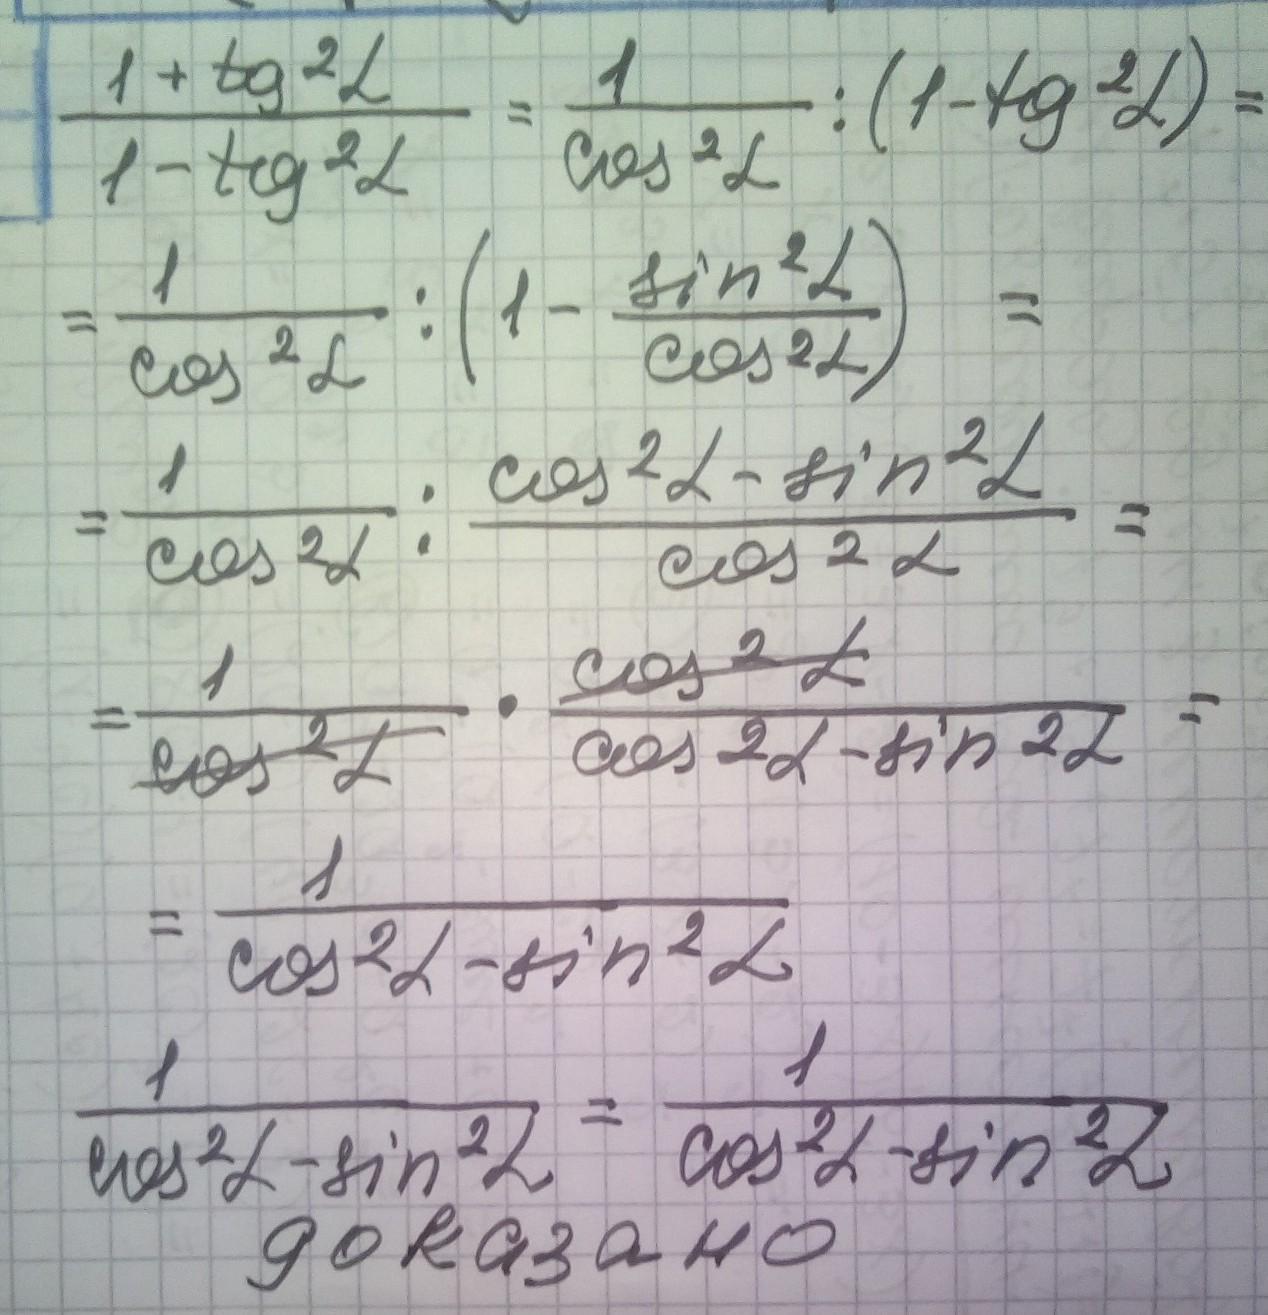 (1 + tg²α)/(1 - tg²α) = 1/cos²α : (1 - tg²α) =
= 1/cos²α : (1 - sin²α/cos²α) =
= 1/cos²α : (cos²α - sin²α)/cos²α =
= 1/cos²α · cos²α/(cos²α - sin²α) =
= 1/(cos²α - sin²α)
1/(cos²α - sin²α) = 1/(cos²α - sin²α)
доказано